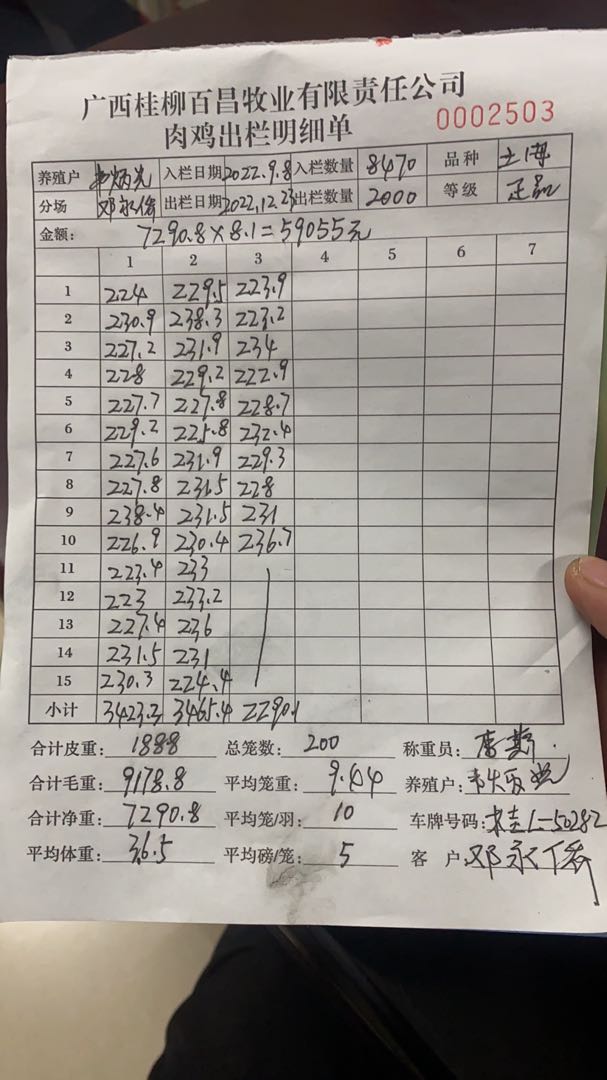 广西桂柳百昌牧业有限责任公司
肉鸡出栏明细单 0002503
养殖户 韦炳光 入栏日期 2022.9.8 入栏数量 8470 品种 土
分场 邓永俦 出栏日期 2022.12.23 出栏数量 2000 等级 正品
金额: 7290.8×8.1=59055元
1 2 3 4 5 6 7
1 224 229.5 223.9
2 230.9 238.3 223.2
3 227.2 231.9 234
4 228 229.2 222.9
5 227.7 227.8 228.7
6 229.2 225.8 232.4
7 227.6 231.9 229.3
8 227.8 231.5 228
9 238.4 231.5 231
10 226.9 230.4 236.7
11 223.4 233
12 223 233.2
13 227.4 236
14 231.5 231
15 230.3 224.4
小计 3423.3 3465.4 2290.1
合计皮重: 1888 总笼数: 200 称重员:
合计毛重: 9178.8 平均笼重: 9.44 养殖户:
合计净重: 7290.8 平均笼/羽: 10 车牌号码: 桂L-50282
平均体重: 3.6.5 平均磅/笼: 5 客户: 邓永俦